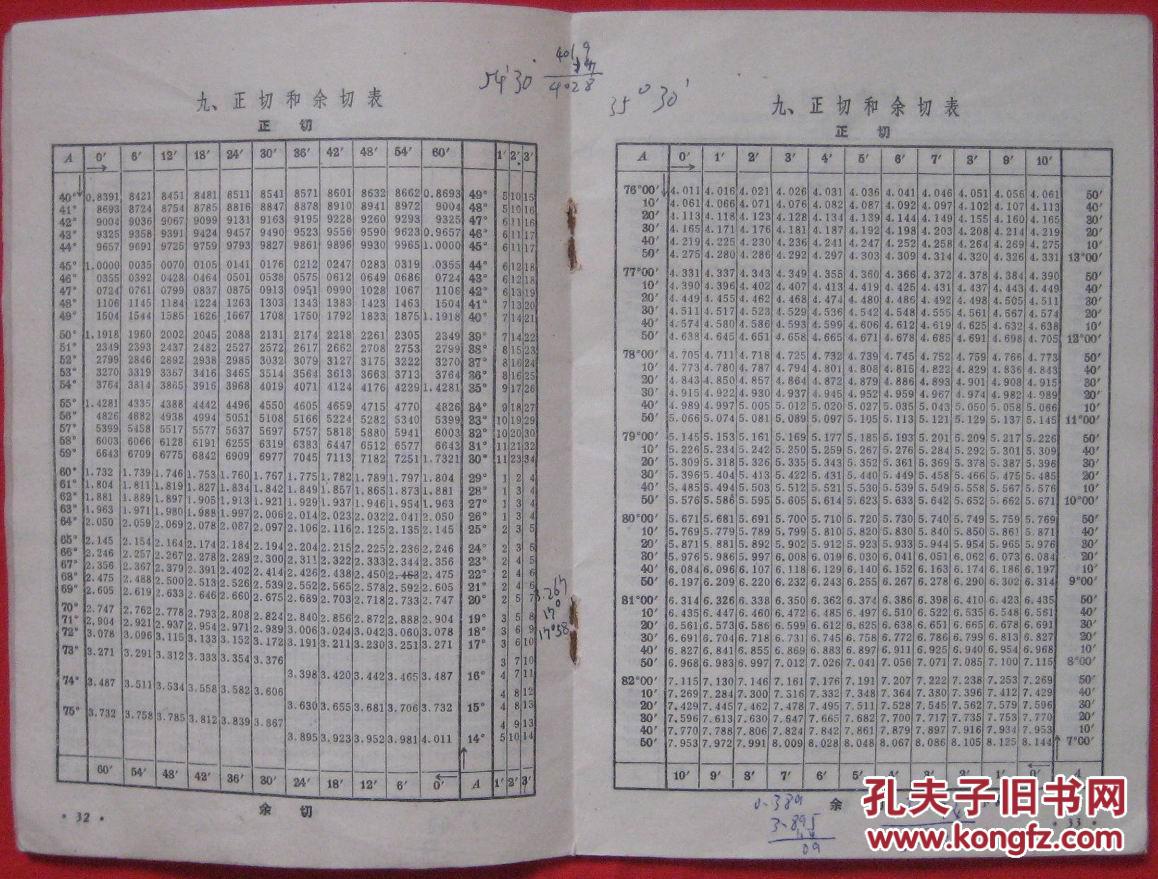 九、正切和余切表
正 切
A 0′ 6′ 12′ 18′ 24′ 30′ 36′ 42′ 48′ 54′ 60′ 1′ 2′ 3′
40° 0.8391 8421 8451 8481 8511 8541 8571 8601 8632 8662 0.8693 49° 5 10 15
41° 8693 8724 8754 8785 8816 8847 8878 8910 8941 8972 9004 48° 5 10 16
42° 9004 9036 9067 9099 9131 9163 9195 9228 9260 9293 9325 47° 6 11 16
43° 9325 9358 9391 9424 9457 9490 9523 9556 9590 9623 0.9657 46° 6 11 17
44° 9657 9691 9725 9759 9793 9827 9861 9896 9930 9965 1.0000 45° 6 11 17
45° 1.0000 0035 0070 0105 0141 0176 0212 0247 0283 0319 0355 44° 6 12 18
46° 0355 0392 0428 0464 0501 0538 0575 0612 0649 0686 0724 43° 6 12 18
47° 0724 0761 0799 0837 0875 0913 0951 0990 1028 1067 1106 42° 6 13 19
48° 1106 1145 1184 1224 1263 1303 1343 1383 1423 1463 1504 41° 7 13 20
49° 1504 1544 1585 1626 1667 1708 1750 1792 1833 1875 1.1918 40° 7 14 21
50° 1.1918 1960 2002 2045 2088 2131 2174 2218 2261 2305 2349 39° 7 14 22
51° 2349 2393 2437 2482 2527 2572 2617 2662 2708 2753 2799 38° 8 15 23
52° 2799 2846 2892 2938 2985 3032 3079 3127 3175 3222 3270 37° 8 16 24
53° 3270 3319 3367 3416 3465 3514 3564 3613 3663 3713 3764 36° 8 16 25
54° 3764 3814 3865 3916 3968 4019 4071 4124 4176 4229 1.4281 35° 9 17 26
55° 1.4281 4335 4388 4442 4496 4550 4605 4659 4715 4770 4826 34° 9 18 27
56° 4826 4882 4938 4994 5051 5108 5166 5224 5282 5340 5399 33° 10 19 29
57° 5399 5458 5517 5577 5637 5697 5757 5818 5880 5941 6003 32° 10 20 30
58° 6003 6066 6128 6191 6255 6319 6383 6447 6512 6577 6643 31° 11 21 32
59° 6643 6709 6775 6842 6909 6977 7045 7113 7182 7251 1.7321 30° 11 23 34
60° 1.732 1.739 1.746 1.753 1.760 1.767 1.775 1.782 1.789 1.797 1.804 29° 1 2 4
61° 1.804 1.811 1.819 1.827 1.834 1.842 1.849 1.857 1.865 1.873 1.881 28° 1 3 4
62° 1.881 1.889 1.897 1.905 1.913 1.921 1.929 1.937 1.946 1.954 1.963 27° 1 3 4
63° 1.963 1.971 1.980 1.988 1.997 2.006 2.014 2.023 2.032 2.041 2.050 26° 1 3 4
64° 2.050 2.059 2.069 2.078 2.087 2.097 2.106 2.116 2.125 2.135 2.145 25° 2 3 5
65° 2.145 2.154 2.164 2.174 2.184 2.194 2.204 2.215 2.225 2.236 2.246 24° 2 3 5
66° 2.246 2.257 2.267 2.278 2.289 2.300 2.311 2.322 2.333 2.344 2.356 23° 2 4 5
67° 2.356 2.367 2.379 2.391 2.402 2.414 2.426 2.438 2.450 2.463 2.475 22° 2 4 6
68° 2.475 2.488 2.500 2.513 2.526 2.539 2.552 2.565 2.578 2.592 2.605 21° 2 4 6
69° 2.605 2.619 2.633 2.646 2.660 2.675 2.689 2.703 2.718 2.733 2.747 20° 2 5 7
70° 2.747 2.762 2.778 2.793 2.808 2.824 2.840 2.856 2.872 2.888 2.904 19° 3 5 8
71° 2.904 2.921 2.937 2.954 2.971 2.989 3.006 3.024 3.042 3.060 3.078 18° 3 6 9
72° 3.078 3.096 3.115 3.133 3.152 3.172 3.191 3.211 3.230 3.251 3.271 17° 3 6 10
73° 3.271 3.291 3.312 3.333 3.354 3.376 3 7 10
3.398 3.420 3.442 3.465 3.487 16° 4 7 11
74° 3.487 3.511 3.534 3.558 3.582 3.606 4 8 12
3.630 3.655 3.681 3.706 3.732 15° 4 8 13
75° 3.732 3.758 3.785 3.812 3.839 3.867 4 9 13
3.895 3.923 3.952 3.981 4.011 14° 5 10 14
60′ 54′ 48′ 42′ 36′ 30′ 24′ 18′ 12′ 6′ 0′ A 1′ 2′ 3′
余 切
· 32 ·
54°30′
4019
4028
35°30′
九、正切和余切表
正 切
A 0′ 1′ 2′ 3′ 4′ 5′ 6′ 7′ 8′ 9′ 10′
76°00′ 4.011 4.016 4.021 4.026 4.031 4.036 4.041 4.046 4.051 4.056 4.061 50′
10′ 4.061 4.066 4.071 4.076 4.082 4.087 4.092 4.097 4.102 4.107 4.113 40′
20′ 4.113 4.118 4.123 4.128 4.134 4.139 4.144 4.149 4.155 4.160 4.165 30′
30′ 4.165 4.171 4.176 4.181 4.187 4.192 4.198 4.203 4.208 4.214 4.219 20′
40′ 4.219 4.225 4.230 4.236 4.241 4.247 4.252 4.258 4.264 4.269 4.275 10′
50′ 4.275 4.280 4.286 4.292 4.297 4.303 4.309 4.314 4.320 4.326 4.331 13°00′
77°00′ 4.331 4.337 4.343 4.349 4.355 4.360 4.366 4.372 4.378 4.384 4.390 50′
10′ 4.390 4.396 4.402 4.407 4.413 4.419 4.425 4.431 4.437 4.443 4.449 40′
20′ 4.449 4.455 4.462 4.468 4.474 4.480 4.486 4.492 4.498 4.505 4.511 30′
30′ 4.511 4.517 4.523 4.529 4.536 4.542 4.548 4.555 4.561 4.567 4.574 20′
40′ 4.574 4.580 4.586 4.593 4.599 4.606 4.612 4.619 4.625 4.632 4.638 10′
50′ 4.638 4.645 4.651 4.658 4.665 4.671 4.678 4.685 4.691 4.698 4.705 12°00′
78°00′ 4.705 4.711 4.718 4.725 4.732 4.739 4.745 4.752 4.759 4.766 4.773 50′
10′ 4.773 4.780 4.787 4.794 4.801 4.808 4.815 4.822 4.829 4.836 4.843 40′
20′ 4.843 4.850 4.857 4.864 4.872 4.879 4.886 4.893 4.901 4.908 4.915 30′
30′ 4.915 4.922 4.930 4.937 4.945 4.952 4.959 4.967 4.974 4.982 4.989 20′
40′ 4.989 4.997 5.005 5.012 5.020 5.027 5.035 5.043 5.050 5.058 5.066 10′
50′ 5.066 5.074 5.081 5.089 5.097 5.105 5.113 5.121 5.129 5.137 5.145 11°00′
79°00′ 5.145 5.153 5.161 5.169 5.177 5.185 5.193 5.201 5.209 5.217 5.226 50′
10′ 5.226 5.234 5.242 5.250 5.259 5.267 5.276 5.284 5.292 5.301 5.309 40′
20′ 5.309 5.318 5.326 5.335 5.343 5.352 5.361 5.369 5.378 5.387 5.396 30′
30′ 5.396 5.404 5.413 5.422 5.431 5.440 5.449 5.458 5.466 5.475 5.485 20′
40′ 5.485 5.494 5.503 5.512 5.521 5.530 5.539 5.549 5.558 5.567 5.576 10′
50′ 5.576 5.586 5.595 5.605 5.614 5.623 5.633 5.642 5.652 5.662 5.671 10°00′
80°00′ 5.671 5.681 5.691 5.700 5.710 5.720 5.730 5.740 5.749 5.759 5.769 50′
10′ 5.769 5.779 5.789 5.799 5.810 5.820 5.830 5.840 5.850 5.861 5.871 40′
20′ 5.871 5.881 5.892 5.902 5.912 5.923 5.933 5.944 5.954 5.965 5.976 30′
30′ 5.976 5.986 5.997 6.008 6.019 6.030 6.041 6.051 6.062 6.073 6.084 20′
40′ 6.084 6.096 6.107 6.118 6.129 6.140 6.152 6.163 6.174 6.186 6.197 10′
50′ 6.197 6.209 6.220 6.232 6.243 6.255 6.267 6.278 6.290 6.302 6.314 9°00′
81°00′ 6.314 6.326 6.338 6.350 6.362 6.374 6.386 6.398 6.410 6.423 6.435 50′
10′ 6.435 6.447 6.460 6.472 6.485 6.497 6.510 6.522 6.535 6.548 6.561 40′
20′ 6.561 6.573 6.586 6.599 6.612 6.625 6.638 6.651 6.665 6.678 6.691 30′
30′ 6.691 6.704 6.718 6.731 6.745 6.758 6.772 6.786 6.799 6.813 6.827 20′
40′ 6.827 6.841 6.855 6.869 6.883 6.897 6.911 6.925 6.940 6.954 6.968 10′
50′ 6.968 6.983 6.997 7.012 7.026 7.041 7.056 7.071 7.085 7.100 7.115 8°00′
82°00′ 7.115 7.130 7.146 7.161 7.176 7.191 7.207 7.222 7.238 7.253 7.269 50′
10′ 7.269 7.284 7.300 7.316 7.332 7.348 7.364 7.380 7.396 7.412 7.429 40′
20′ 7.429 7.445 7.462 7.478 7.495 7.511 7.528 7.545 7.562 7.579 7.596 30′
30′ 7.596 7.613 7.630 7.647 7.665 7.682 7.700 7.717 7.735 7.753 7.770 20′
40′ 7.770 7.788 7.806 7.824 7.842 7.861 7.879 7.897 7.916 7.934 7.953 10′
50′ 7.953 7.972 7.991 8.009 8.028 8.048 8.067 8.086 8.105 8.125 8.144 7°00′
10′ 9′ 8′ 7′ 6′ 5′ 4′ 3′ 2′ 1′ 0′ A
余
0.389
3.895
09
· 33 ·
孔夫子旧书网
WWW.KONGFZ.COM